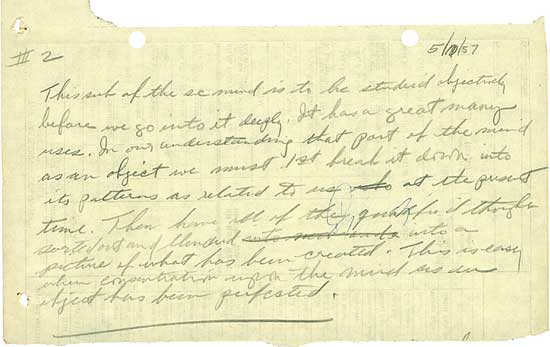 III 2
5/11/57
This sub of the sc mind is to be studied objectively
before we go into it deeply. It has a great many
uses. In our understanding that part of the mind
as an object we must 1st break it down into
its patterns as related to us at the present
time. Then have all of the thought
sorted out and blended into a
picture of what has been created. This is easy
when concentration upon the mind as an
object has been perfected.